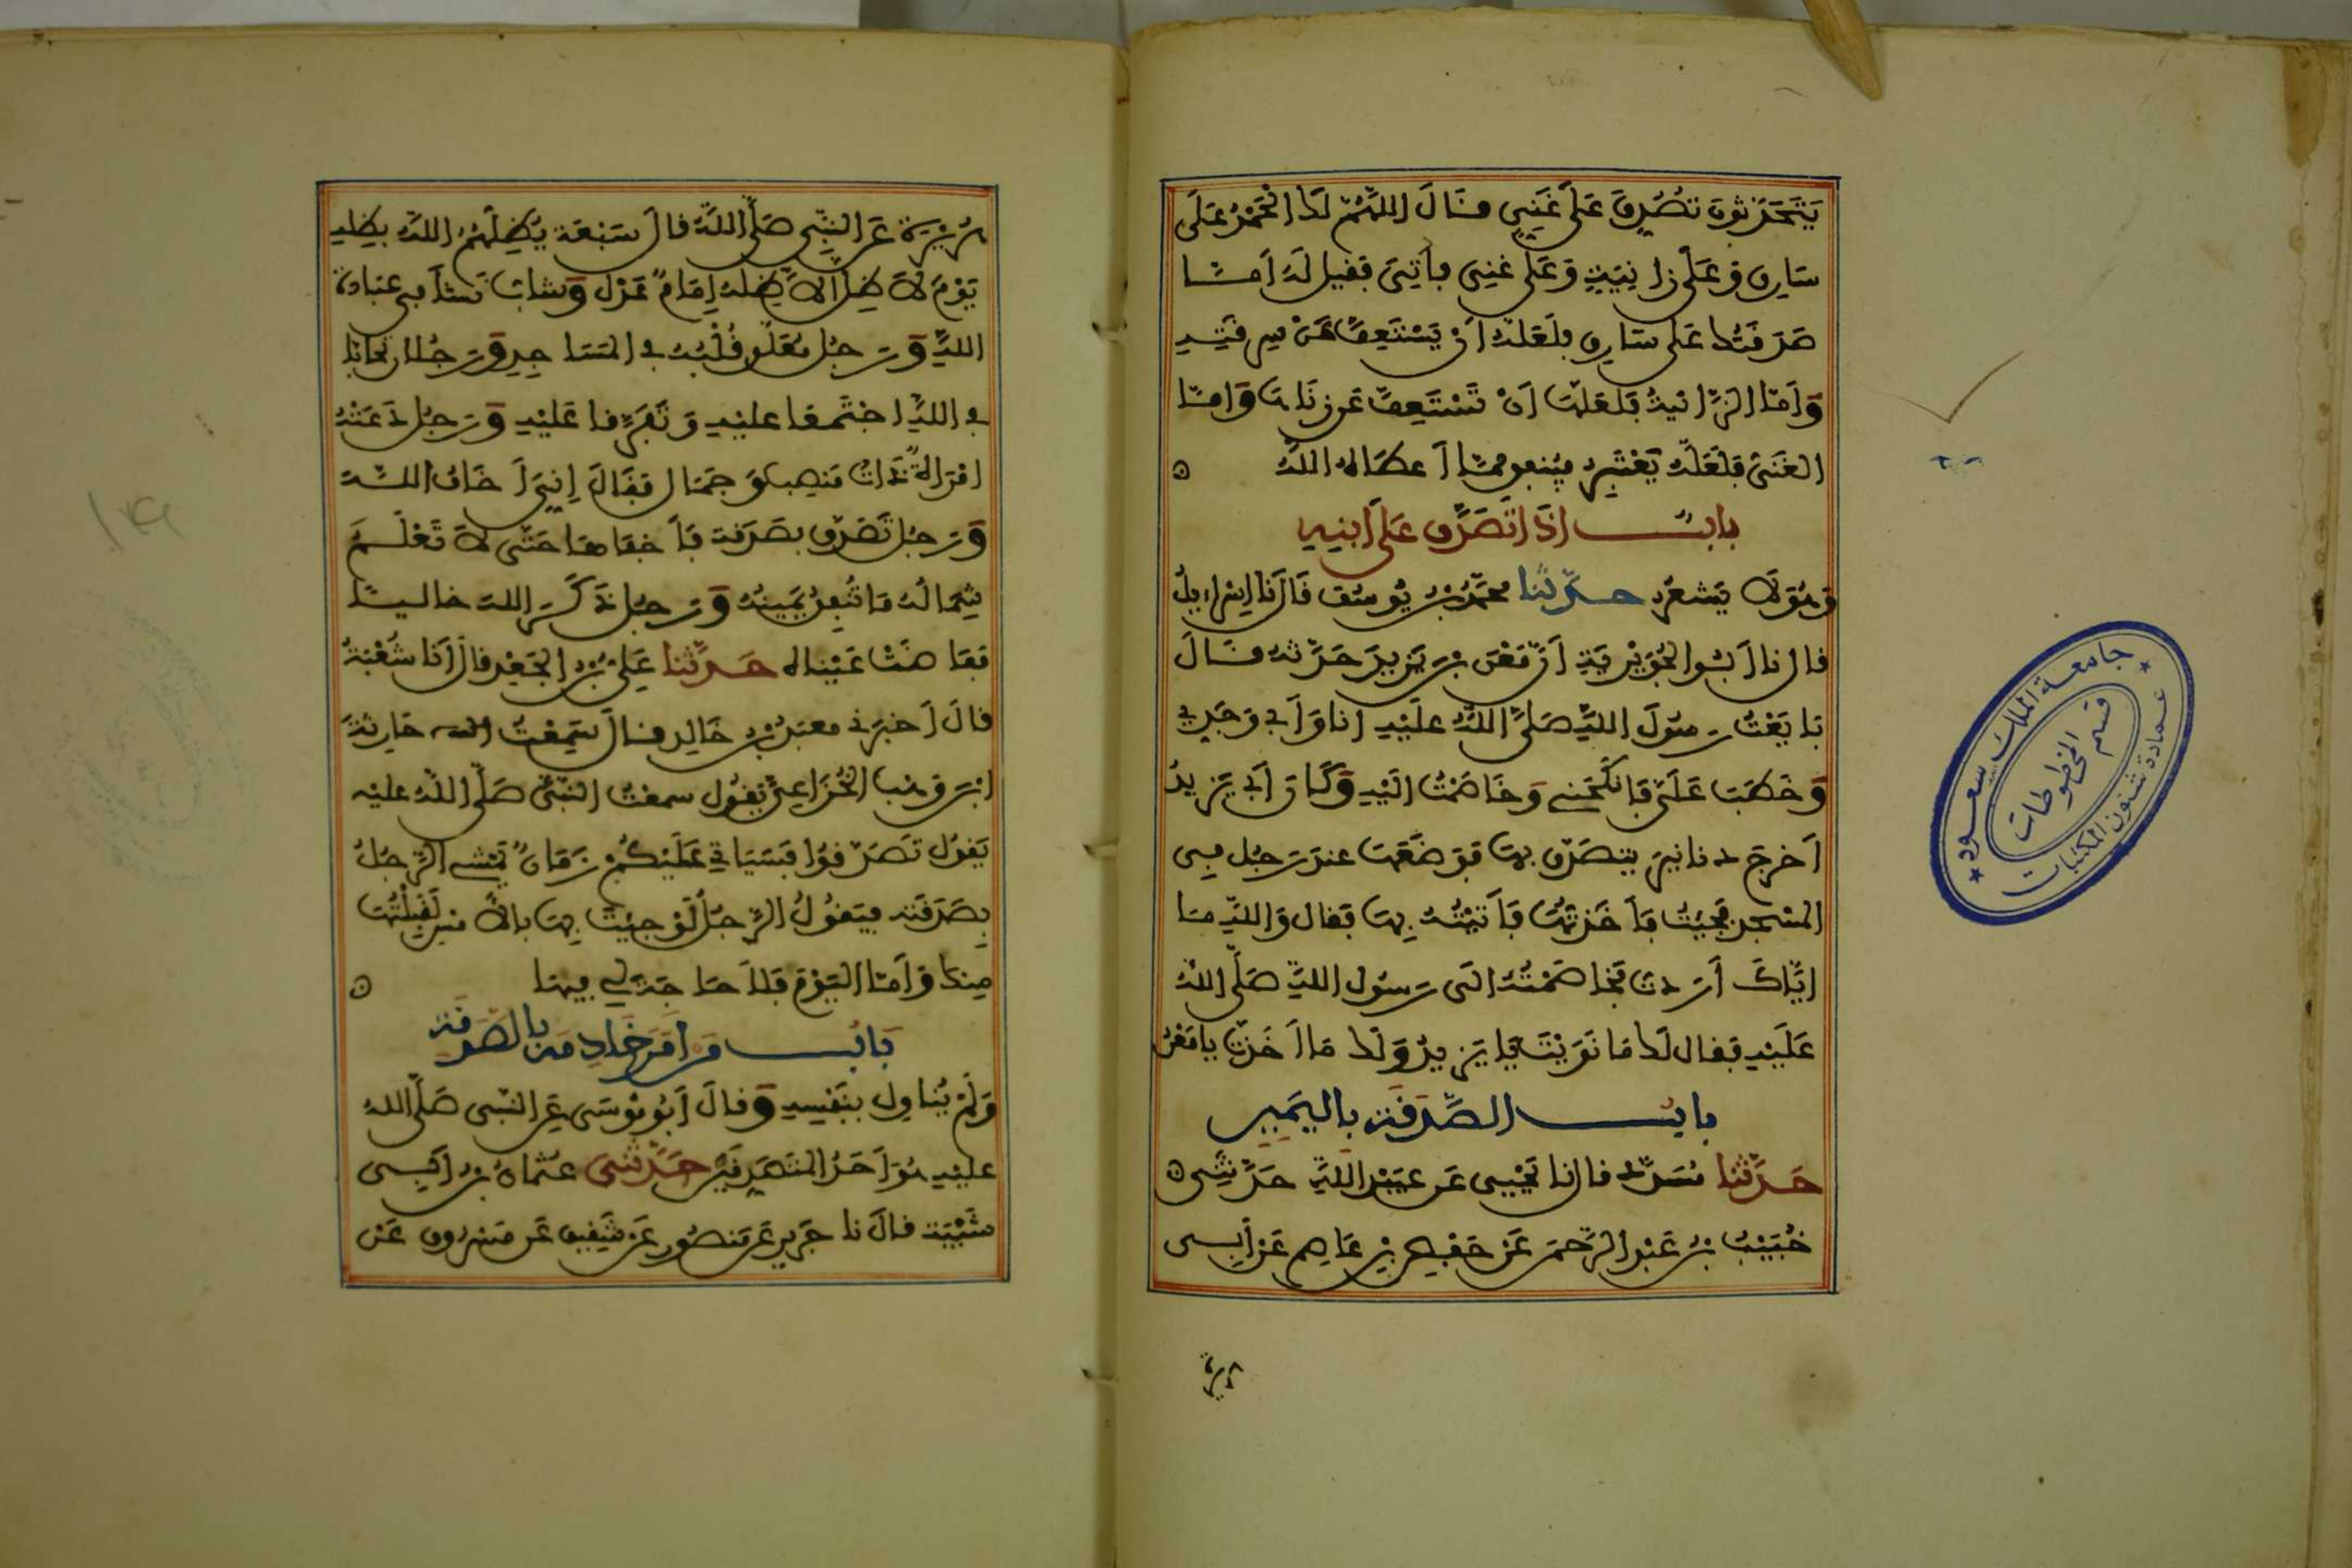 يَتَحَدَّثُونَ تُصُدِّقَ عَلَى غَنِيٍّ فقَالَ اللهُمَّ لَكَ الْحَمْدُ عَلَى
سَارِقٍ وَعَلَى زَانِيَةٍ وَعَلَى غَنِيٍّ فأُتِيَ فَقِيلَ لَهُ أَمَّا
صَدَقَتُكَ عَلَى سَارِقٍ فَلَعَلَّهُ أَنْ يَسْتَعِفَّ عَنْ سِرِقَتِهِ
وَأَمَّا الزَّانِيَةُ فَلَعَلَّهَا أَنْ تَسْتَعِفَّ عَن زِنَاهَا وَأَمَّا
الغَنِيُّ فَلَعَلَّهُ يَعْتَبِرُ فيُنفِقُ مِمَّا أَعطَاهُ اللَّهُ
بابُ إذَا تَصَدَّقَ عَلَى ابْنِهِ
وَهُوَ لَا يَشعُرُ حدَّثنا محَمَّدُ بْنُ يُوسُفَ قَالَ نَا إِسْرَاءِيلُ
قال نا أَبُو الجُوَيْرِيَةِ أَنَّ مَعْنَ بْنَ يَزِيدَ حَدَّثَهُ قَالَ
بَايَعْتُ رَسُولَ اللَّهِ صَلَّى اللَّهُ عَلَيْهِ أنا وَأَبِي وَجَدِّي
وَخَطَبَ عَلَيَّ فَأَنكَحَنِي وَخَاصَمْتُ إلَيْهِ وَكَانَ أَبِي يَزِيدُ
أَخرَجَ دنانِيرَ يتصَدَّقُ بِهَا فَوَضَعَهَا عندَ رَجُلٍ فِي
المَسْجِدِ فجِئتُ فَأَخَذتُهَا فَأَتَيْتُهُ بِهَا فقال وَاللَّهِ مَا
إيَّاكَ أَرَدتُ فَخَاصَمْتُهُ إلَى رَسُولِ اللَّهِ صَلَّى اللَّهُ
عَلَيْهِ فقال لَكَ مَا نَوَيْتَ يَا يَزِيدُ وَلَكَ مَا أَخَذتَ يا مَعْنُ
بابُ الصَّدَقَةِ باليَمِينِ
حَدَّثَنا مُسَدَّدٌ قال نا يَحْيى عَن عُبَيْدِ اللَّهِ حَدَّثَنِي
خُبَيْبُ بْنُ عَبْدِ الرَّحمَنِ عَنْ حَفْصِ بْنِ عَاصِمٍ عَنْ أَبِي
هُرَيْرَةَ
هُرَيْرَةَ عَنِ النَّبِيِّ صَلَّى اللَّهُ قالَ سَبْعَةٌ يُظِلُّهُمُ اللَّهُ بِظِلِّهِ
يَوْمَ لَا ظِلَّ إلَّا ظِلُّهُ إِمَامٌ عَدْلٌ وَشابٌّ نَشَأَ فِي عِبَادَةِ
اللَّهِ وَرَجُلٌ مُعَلَّقٌ قَلْبُهُ فِي المَسَاجِدِ وَرَجُلانِ تَحَابَّا
فِي اللَّهِ اجْتَمَعَا عليْهِ وَتَفَرَّقا عَلَيْهِ وَرَجُلٌ دَعَتْهُ
امْرَأَةٌ ذَاتُ مَنْصِبٍ وَجَمَالٍ فَقَالَ إِنِّي أَخَافُ اللهَ
وَرَجُلٌ تَصَدَّقَ بصَدَقَةٍ فَأَخفَاهَا حَتَّى لَا تَعْلَمَ
شِمَالُهُ مَا تُنفِقُ يَمِينُهُ وَرَجُلٌ ذَكَرَ اللهَ خاليًا
ففَاضَتْ عَيْنَاهُ حَدَّثَنا عَلِيُّ بْنُ الجَعْدِ قال أَنَا شُعْبَةُ
قالَ أَخبَرَنِي مَعْبَدُ بْنُ خَالِدٍ قالَ سَمِعْتُ حَارِثَةَ
ابْنَ وَهْبٍ الخُزَاعِيَّ يَقُولُ سمعتُ النَّبِيَّ صَلَّى اللَّهُ عليْهِ
يَقُولُ تَصَدَّقُوا فسَيَأتِي عَلَيْكُمْ زَمَانٌ يَمْشِي الرَّجُلُ
بِصَدَقَتِهِ فيَقُولُ الرَّجُلُ لَوْ جِئتَ بِهَا بالأَمْسِ لَقَبِلْتُهَا
مِنكَ وَأَمَّا اليَوْمَ فَلَا حَاجَةَ لِي فِيهَا
بَابُ مَن أَمَرَ خَادِمَهُ بالصَّدَقَةِ
وَلَمْ يُنَاوِلْ بِنَفْسِهِ وَقالَ أَبُو مُوسَى عَنِ النَّبِيِّ صَلَّى اللهُ
عليْهِ هُوَ أَحَدُ المُتَصَدِّقَيْنِ حَدَّثَنِي عُثمانُ بْنُ أَبِي
شَيْبَةَ قالَ نا جَرِيرٌ عَن مَنصُورٍ عَنْ شَقِيقٍ عَن مَسْرُوقٍ عَنْ
جامعة الملك سعود
عمادة شئون المكتبات
قسم المخطوطات